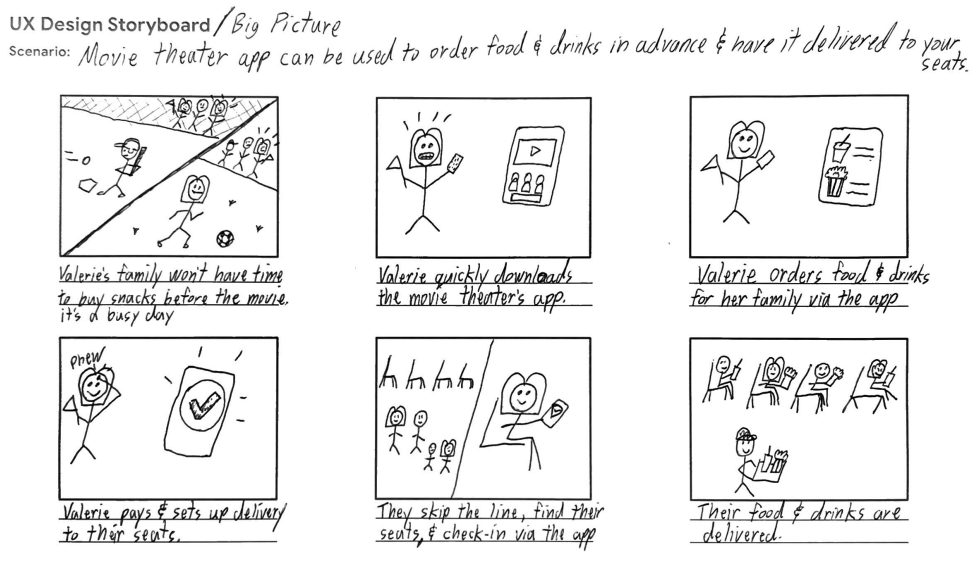 UX Design Storyboard / Big Picture
Scenario: Movie theater app can be used to order food & drinks in advance & have it delivered to your
seats.
Valerie's family won't have time
to buy snacks before the movie,
it's a busy day
Valerie quickly downloads
the movie theater's app.
Valerie orders food & drinks
for her family via the app
phew
Valerie pays & sets up delivery
to their seats.
They skip the line, find their
seats, & check-in via the app
Their food & drinks are
delivered.